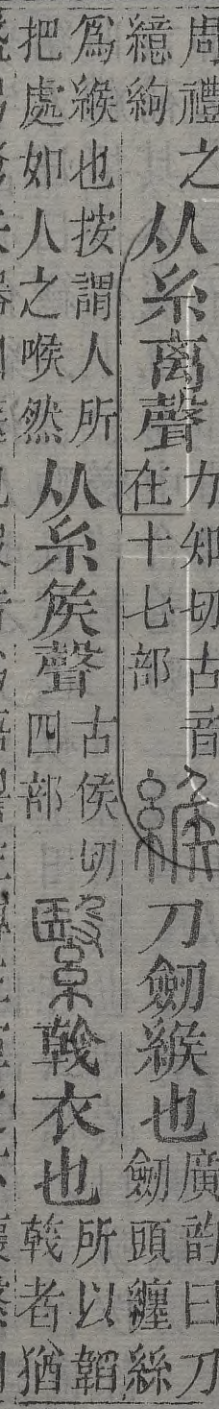 周禮之繶絇从糸离聲力知切古音在十七部緱刀劒緱也廣韵曰刀劒頭纏絲
爲緱也按謂人所把處如人之喉然从糸矦聲古侯切四部繄戟衣也所以韜戟者猶